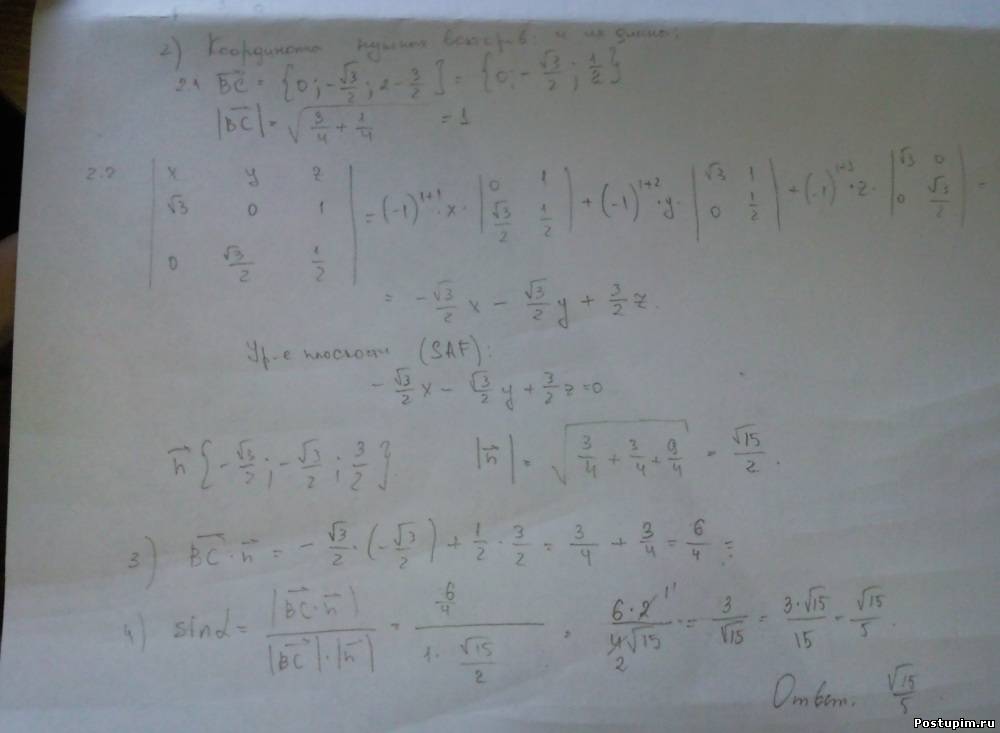 2) Координата нужных векторов и их длина:
2.1 BC = {0; -√3/2; 2 - 3/2} = {0; -√3/2; 1/2}
|BC| = √(3/4 + 1/4) = 1
2.2 | x y z |
| √3 0 1 | = (-1)^(1+1) · x · | 0 1 ; √3/2 1/2 | + (-1)^(1+2) · y · | √3 1 ; 0 1/2 | + (-1)^(1+3) · z · | √3 0 ; 0 √3/2 | =
| 0 √3/2 1/2 |
= -√3/2 x - √3/2 y + 3/2 z.
Ур-е плоскости (SAF):
-√3/2 x - √3/2 y + 3/2 z = 0
n {-√3/2; -√3/2; 3/2} |n| = √(3/4 + 3/4 + 9/4) = √15/2.
3) BC · n = -√3/2 · (-√3/2) + 1/2 · 3/2 = 3/4 + 3/4 = 6/4 =
4) sin α = |BC · n| / |BC| · |n| = 6/4 / 1 · √15/2 = 6·2/4√15 = 3/√15 = 3·√15/15 = √15/5.
Ответ. √15/5
Postupim.ru